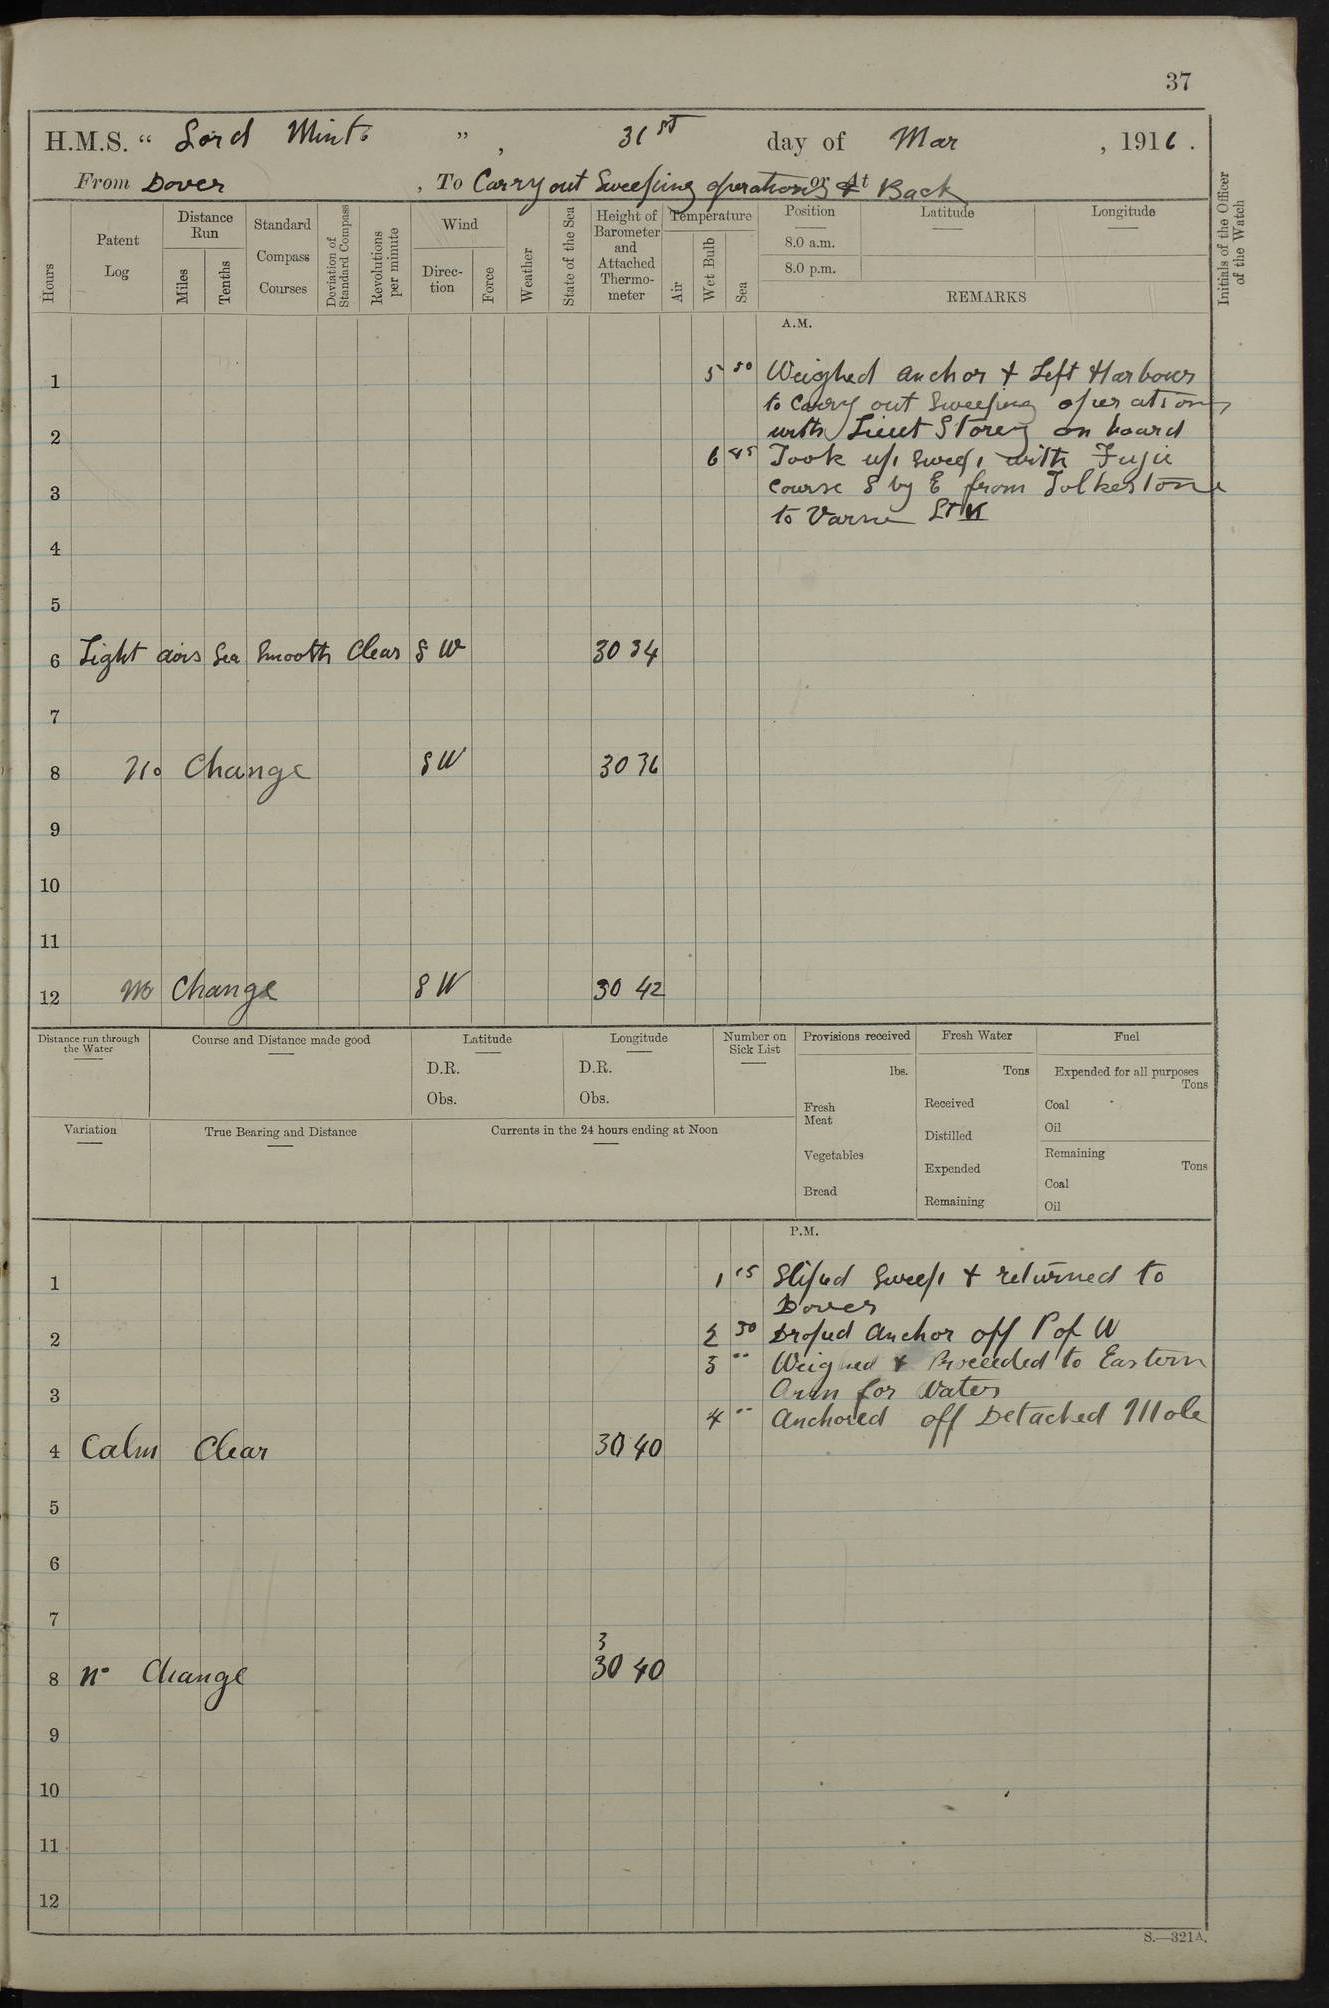 37
H.M.S. “ Lord Minto ” , 31st day of Mar , 1916 .
From Dover , To Carry out Sweeping operations or At & Back
Hours
Patent Log
Distance Run
Miles
Tenths
Standard Compass Courses
Deviation of Standard Compass
Revolutions per minute
Wind
Direc- tion
Force
Weather
State of the Sea
Height of Barometer and Attached Thermo- meter
Temperature
Air
Wet Bulb
Sea
Position
8.0 a.m.
8.0 p.m.
Latitude
Longitude
REMARKS
Initials of the Officer of the Watch
A.M.
1 5 50 Weighed anchor & Left Harbour
to Carry out Sweeping operations
2 with Lieut Storey on board
6 45 Took up Sweep with Fujii
3 Course S by E from Folkestone
to Varne Lt V
4
5
6 Light airs Sea Smooth Clear S W 30 34
7
8 No Change S W 30 36
9
10
11
12 No Change S W 30 42
Distance run through the Water
Course and Distance made good
Latitude
D.R.
Obs.
Longitude
D.R.
Obs.
Number on Sick List
Provisions received
lbs.
Fresh Meat
Vegetables
Bread
Fresh Water
Tons
Received
Distilled
Expended
Remaining
Fuel
Expended for all purposes
Tons
Coal
Oil
Remaining
Tons
Coal
Oil
Variation
True Bearing and Distance
Currents in the 24 hours ending at Noon
P.M.
1 1 15 Sliped Sweep & returned to
Dover
2 2 30 Droped Anchor off P of W
3 " Weighed & Proceeded to Eastern
3 Arm for Water
4 " Anchored off Detached Mole
4 Calm Clear 30 40
5
6
7
3
8 No Change 30 40
9
10
11
12
S.—321A.